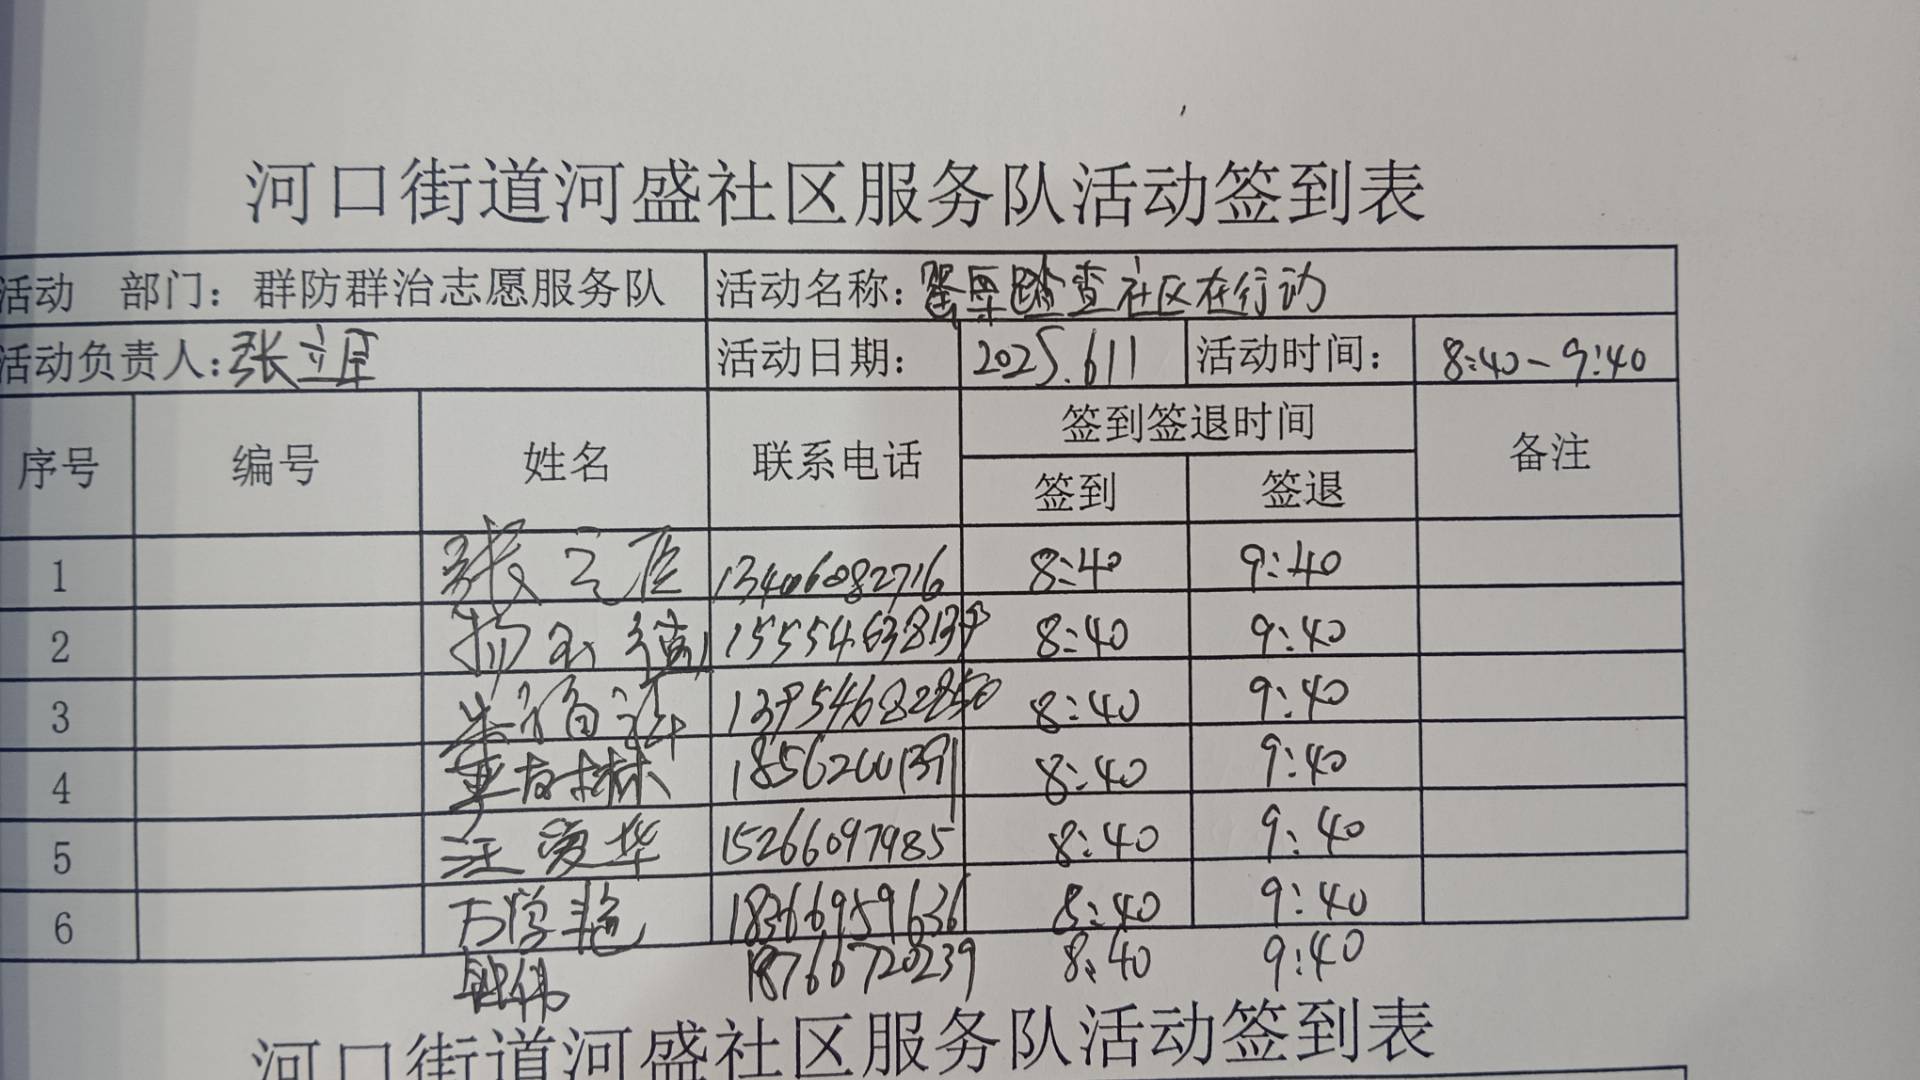 河口街道河盛社区服务队活动签到表
活动 部门：群防群治志愿服务队 活动名称：罂粟踏查社区在行动
活动负责人：张立臣 活动日期： 2025.611 活动时间： 8:40-9:40
序号 编号 姓名 联系电话 签到签退时间 备注
签到 签退
1 张立臣 13406082716 8:40 9:40
2 8:40 9:40
3 13954682850 8:40 9:40
4 8:40 9:40
5 汪爱华 15266097985 8:40 9:40
6 万学艳 18366959636 8:40 9:40
18766720239 8:40 9:40
河口街道河盛社区服务队活动签到表